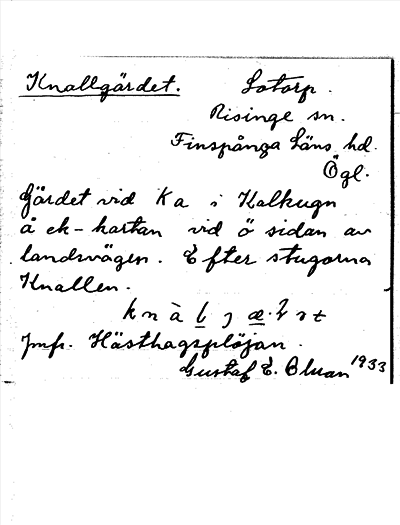 Knallgärdet. Lotorp.
Risinge sn.
Finspånga Läns hd.
Ögl.
Gärdet vid Ka i Kalkugn
å ek-kartan vid ö sidan av
landsvägen. Efter stugorna
Knallen.
Jmfr. Hästhagsplöjan.
Gustaf E. Bluan 1933